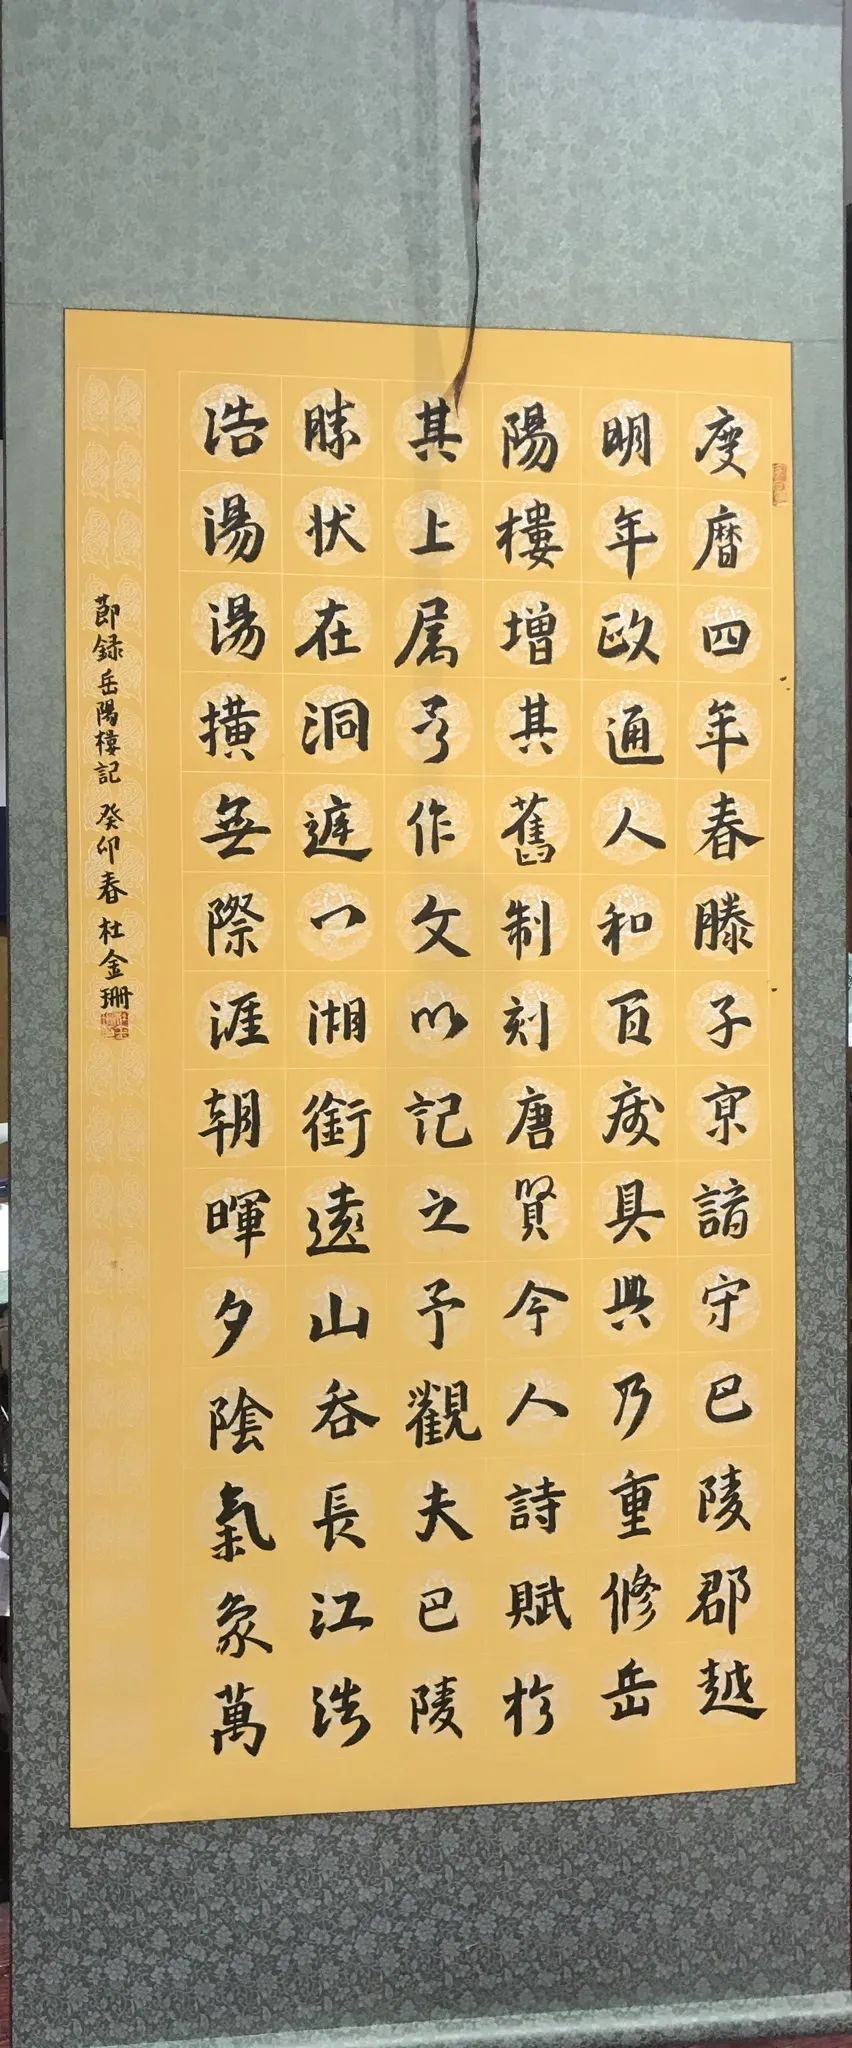 庆曆四年春滕子京謫守巴陵郡越
明年政通人和百废具興乃重修岳
陽樓增其舊制刻唐賢今人詩賦於
其上属予作文以記之予觀夫巴陵
勝状在洞遲一湖銜遠山吞長江浩
浩湯湯横無際涯朝暉夕陰氣象萬
節録岳陽樓記 癸卯春 杜金珊